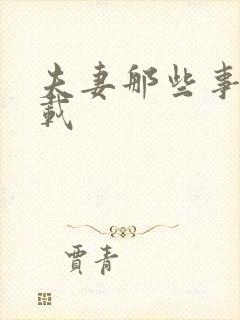 夫妻那些事
載
賈青